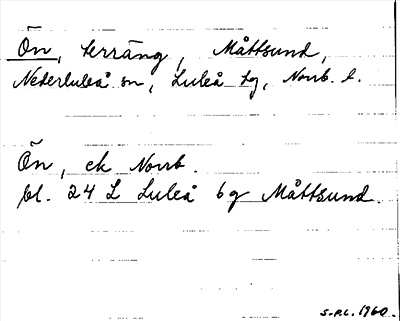 Ön, terräng, Måttsund,
Nederluleå sn, Luleå tg, Norrb. l.
Ön, ek Norrb.
bl. 24 L Luleå 6g Måttsund.
S.P.L. 1960.